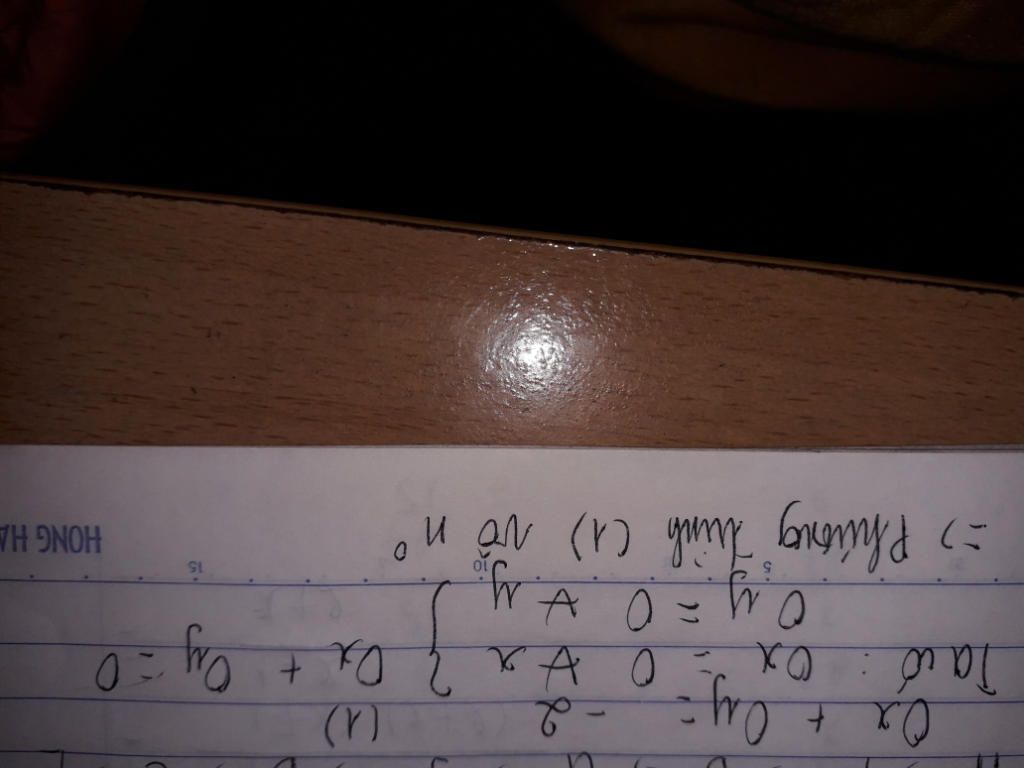 0x + 0y = -2 (1)
Ta có : 0x = 0 ∀ x } 0x + 0y = 0
0y = 0 ∀ y
5 10 15
=) Phương trình (1) vô n°
HONG HA